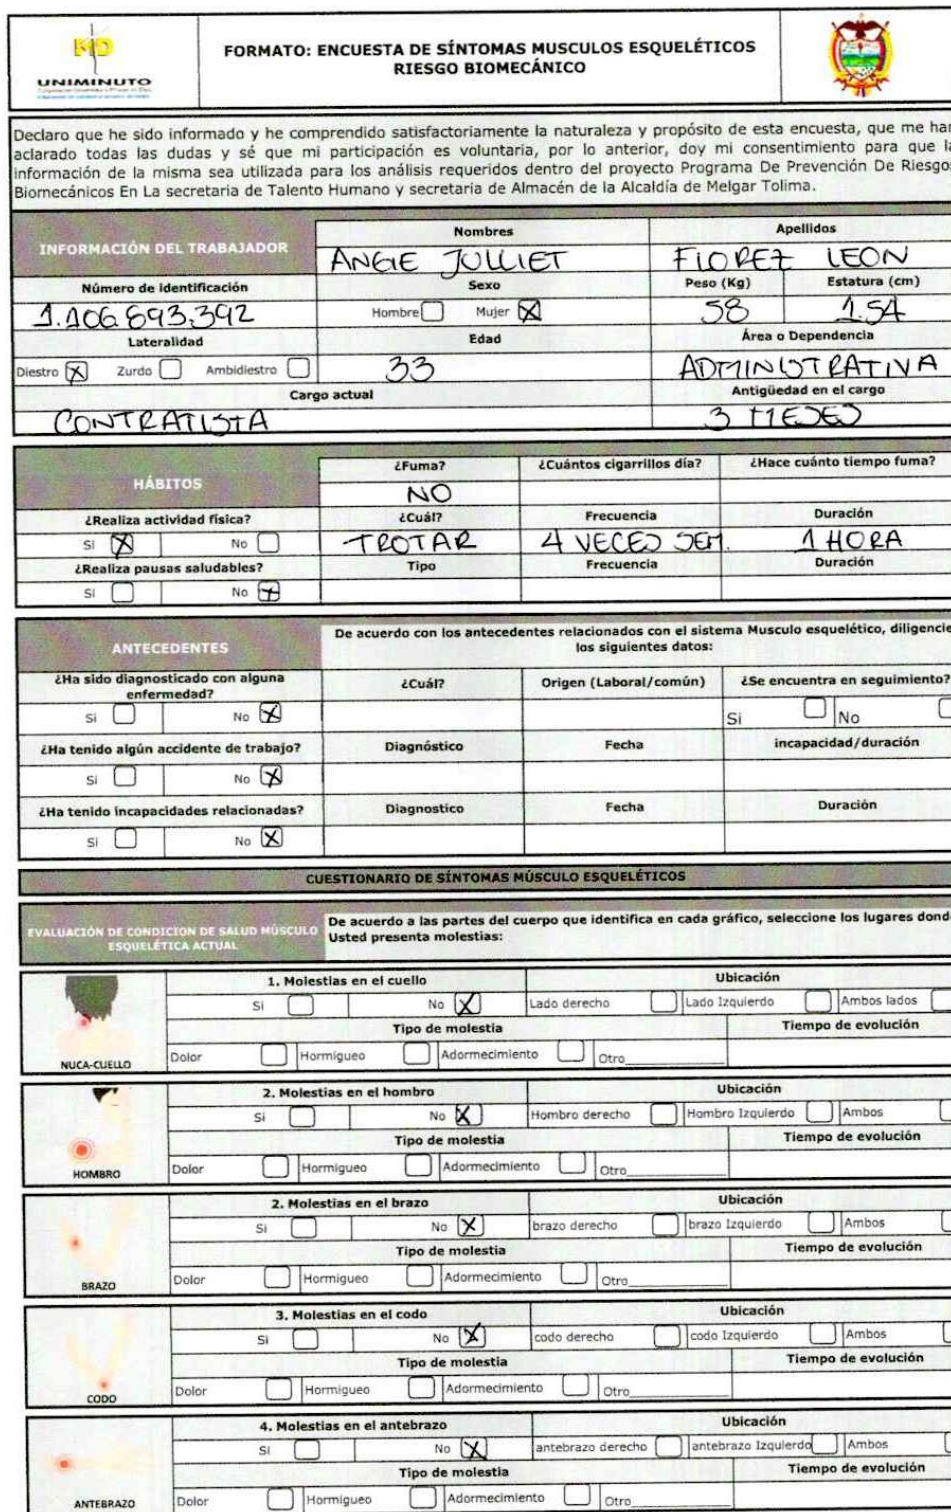 UNIMINUTO
FORMATO: ENCUESTA DE SÍNTOMAS MUSCULOS ESQUELÉTICOS
RIESGO BIOMECÁNICO
Declaro que he sido informado y he comprendido satisfactoriamente la naturaleza y propósito de esta encuesta, que me han
aclarado todas las dudas y sé que mi participación es voluntaria, por lo anterior, doy mi consentimiento para que la
información de la misma sea utilizada para los análisis requeridos dentro del proyecto Programa De Prevención De Riesgo
Biomecánicos En La secretaria de Talento Humano y secretaria de Almacén de la Alcaldía de Melgar Tolima.
INFORMACIÓN DEL TRABAJADOR Nombres Apellidos
ANGIE JULLIET FLOREZ LEON
Número de identificación Sexo Peso (Kg) Estatura (cm)
1.106.893.392 Hombre Mujer X 58 1.54
Lateralidad Edad Área o Dependencia
Diestro X Zurdo Ambidiestro 33 ADMINISTRATIVA
Cargo actual Antigüedad en el cargo
CONTRATISTA 3 MESES
HÁBITOS ¿Fuma? ¿Cuántos cigarrillos día? ¿Hace cuánto tiempo fuma?
NO
¿Realiza actividad física? ¿Cuál? Frecuencia Duración
Si X No TROTAR 4 VECES SEM. 1 HORA
¿Realiza pausas saludables? Tipo Frecuencia Duración
Si No X
ANTECEDENTES De acuerdo con los antecedentes relacionados con el sistema Musculo esquelético, diligencie
los siguientes datos:
¿Ha sido diagnosticado con alguna enfermedad? ¿Cuál? Origen (Laboral/común) ¿Se encuentra en seguimiento?
Si No X Si No
¿Ha tenido algún accidente de trabajo? Diagnóstico Fecha incapacidad/duración
Si No X
¿Ha tenido incapacidades relacionadas? Diagnostico Fecha Duración
Si No X
CUESTIONARIO DE SÍNTOMAS MÚSCULO ESQUELÉTICOS
EVALUACIÓN DE CONDICION DE SALUD MÚSCULO ESQUELÉTICA ACTUAL De acuerdo a las partes del cuerpo que identifica en cada gráfico, seleccione los lugares dond
Usted presenta molestias:
1. Molestias en el cuello Ubicación
Si No X Lado derecho Lado Izquierdo Ambos lados
Tipo de molestia Tiempo de evolución
NUCA-CUELLO Dolor Hormigueo Adormecimiento Otro
2. Molestias en el hombro Ubicación
Si No X Hombro derecho Hombro Izquierdo Ambos
Tipo de molestia Tiempo de evolución
HOMBRO Dolor Hormigueo Adormecimiento Otro
2. Molestias en el brazo Ubicación
Si No X brazo derecho brazo Izquierdo Ambos
Tipo de molestia Tiempo de evolución
BRAZO Dolor Hormigueo Adormecimiento Otro
3. Molestias en el codo Ubicación
Si No X codo derecho codo Izquierdo Ambos
Tipo de molestia Tiempo de evolución
CODO Dolor Hormigueo Adormecimiento Otro
4. Molestias en el antebrazo Ubicación
Si No X antebrazo derecho antebrazo Izquierdo Ambos
Tipo de molestia Tiempo de evolución
ANTEBRAZO Dolor Hormigueo Adormecimiento Otro